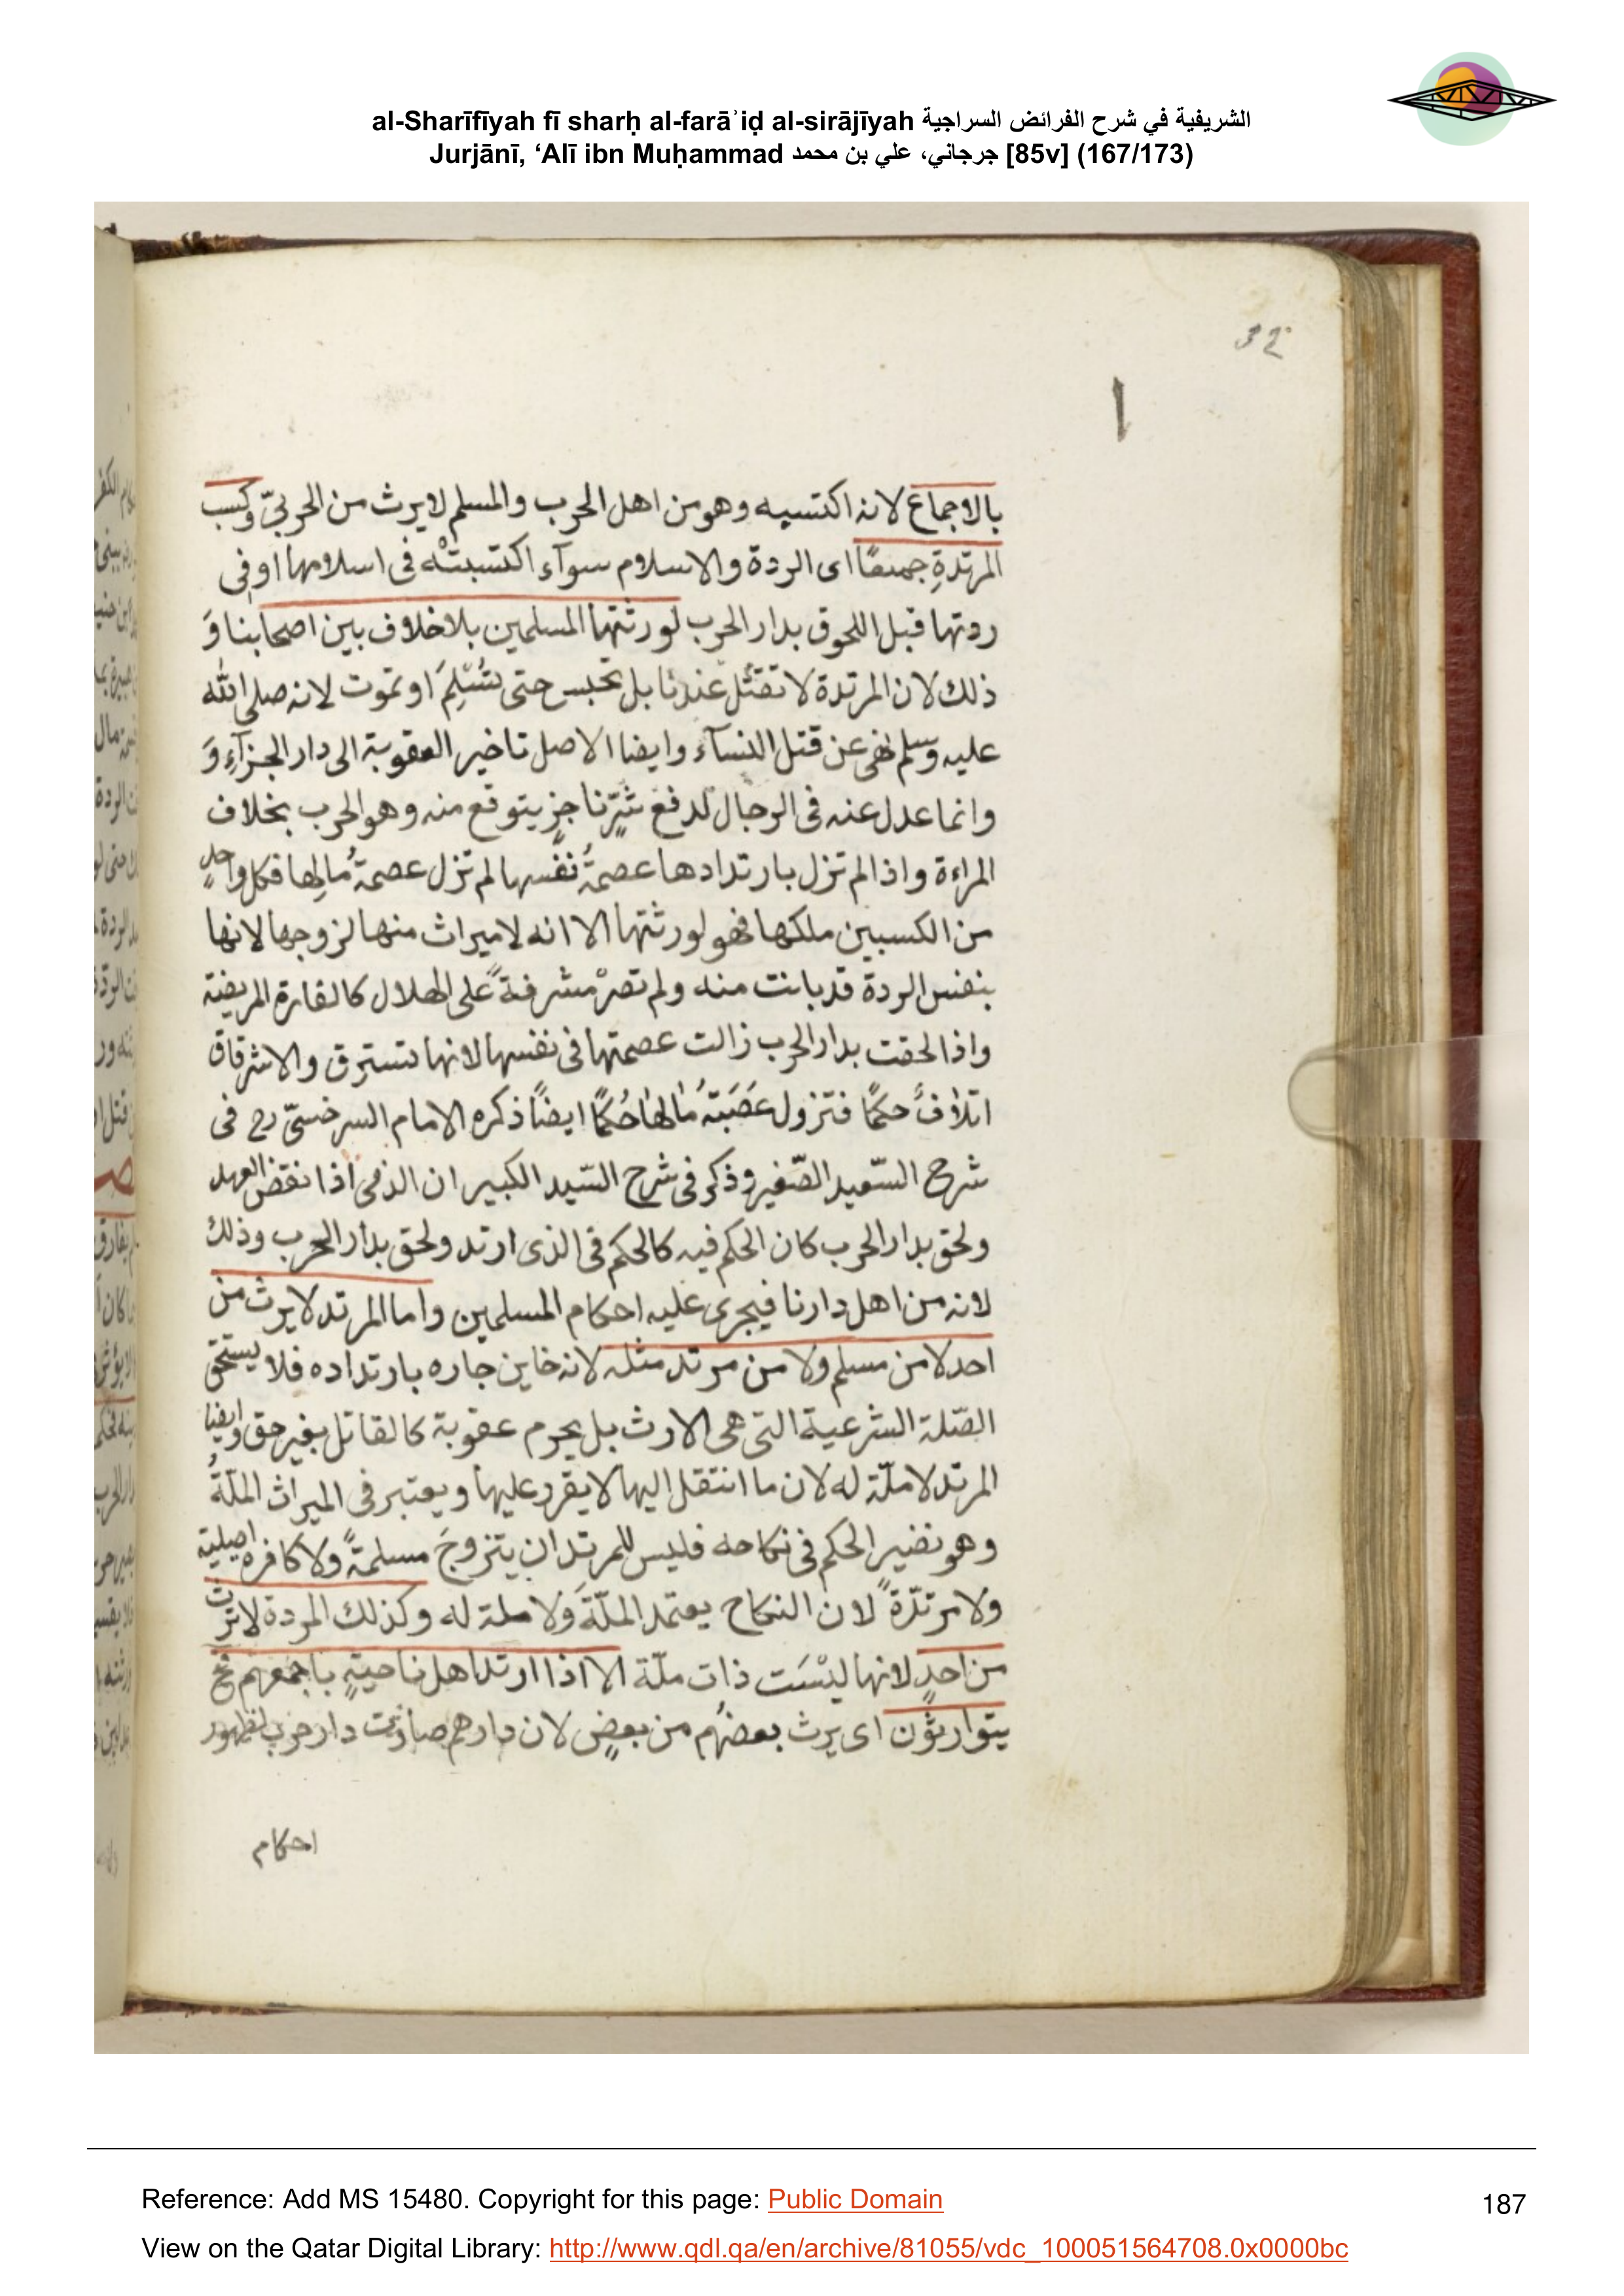 al-Sharīfīyah fī sharḥ al-farāʾiḍ al-sirājīyah الشريفية في شرح الفرائض السراجية
Jurjānī, ‘Alī ibn Muḥammad جرجاني، علي بن محمد [85v] (167/173)
بالاجماع لانه اكتسبه وهو من اهل الحرب والمسلم لا يرث من الحربيّ وكسب
المرتدةِ جميعًا اى الردة والاسلام سوآء اكتسبتْه فى اسلامها او فى
ردتها قبل اللحوق بدار الحرب لورثتها المسلمين بلا خلاف بين اصحابنا وَ
ذلك لان المرتدة لا تقتل عندنا بل تحبس حتى تُسْلِمَ او تموت لانه صلى الله
عليه وسلم نهى عن قتل النسآء وايضا الاصل تاخير العقوبة الى دار الجزآءِ وَ
وانما عدل عنه فى الرجال لدفع شرٍّ ناجزٍ يتوقع منه وهو الحرب بخلاف
المراءة واذا لم تزل بارتدادها عصمةُ نفسها لم تزل عصمةُ مالِها فكل واحدٍ
من الكسبين ملكها فهو لورثتها الا انه لا ميراث منها لزوجها لانها
بنفس الردة قد بانت منه ولم تصرْ مشرفةً على الهلال كالقارة المريضة
واذا لحقت بدار الحرب زالت عصمتها فى نفسها لانها تسترق والاشرقاق
اتلافٌ حكمًا فتزول عَصَبَةُ مالها حُكمًا ايضًا ذكره الامام السرخسىّ رح فى
شرح السّعيد الصّغير وذكر فى شرح السّيد الكبير ان الذمى اذا نقض العهد
ولحق بدار الحرب كان الحكم فيه كالحكم فى الذى ارتد ولحق بدار الحرب وذلك
لانه من اهل دارنا فيجرى عليه احكام المسلمين واما المرتد لا يرث من
احد لا من مسلم ولا من مرتد مثله لانه خاين جاره بارتداده فلا يستحق
الصّلة الشرعية التى هى الارث بل يحرم عقوبة كالقاتل بغير حق وايضا
المرتد لا ملّة له لان ما انتقل اليها لا يقرد عليها ويعتبر فى الميراث الملّةُ
وهو نضير الحكم فى نكاحه فليس للمرتد ان يتزوجَ مسلمةً ولا كافره اصلية
ولا مرتدّةً لان النكاح يعتمد الملّةَ ولا ملة له وكذلك المردة لا ترث
من احدٍ لانها ليْسَت ذات ملّة الا اذا ارتد اهل ناحيةٍ باجمعهم فح
يتوارثون اى يرث بعضهُم من بعضٍ لان دارهم صارت دار حرب لظهور
احكام
Reference: Add MS 15480. Copyright for this page: Public Domain
187
View on the Qatar Digital Library: http://www.qdl.qa/en/archive/81055/vdc_100051564708.0x0000bc